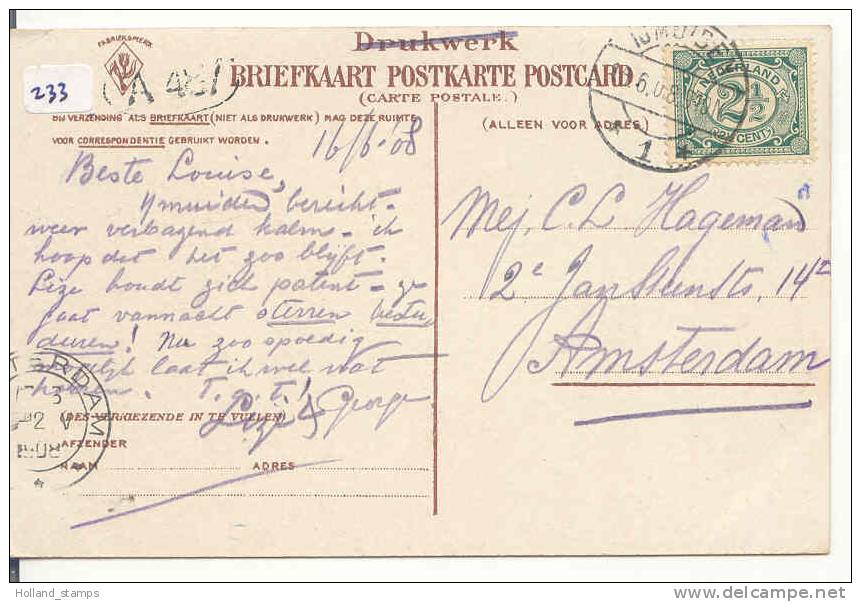 Drukwerk
FABRIEKSMERK
BRIEFKAART POSTKARTE POSTCARD
(CARTE POSTALE.)
233
A 487
BIJ VERZENDING ALS BRIEFKAART (NIET ALS DRUKWERK) MAG DEZE RUIMTE
VOOR CORRESPONDENTIE GEBRUIKT WORDEN.
(ALLEEN VOOR ADRES)
IJMUIDEN
6.08
1
NEDERLAND
2½
CENT
16/6-08
Beste Louise,
Ymuiden bericht-
weer verbazend kalm - ik
hoop dat het zoo blijft.
Lize houdt zich patent - ze
gaat vannacht sterren
duren! Nu zoo spoedig
mogelijk laat ik wel wat
hooren. T.a.t.!
Lize & George
Mej, C. L Hageman
2e Jan Steenstr, 14
Amsterdam
(DES VERKIEZENDE IN TE VULLEN)
AFZENDER
NAAM ADRES
TERDAM
-2 V
1908
Holland_stamps
www.delcampe.net